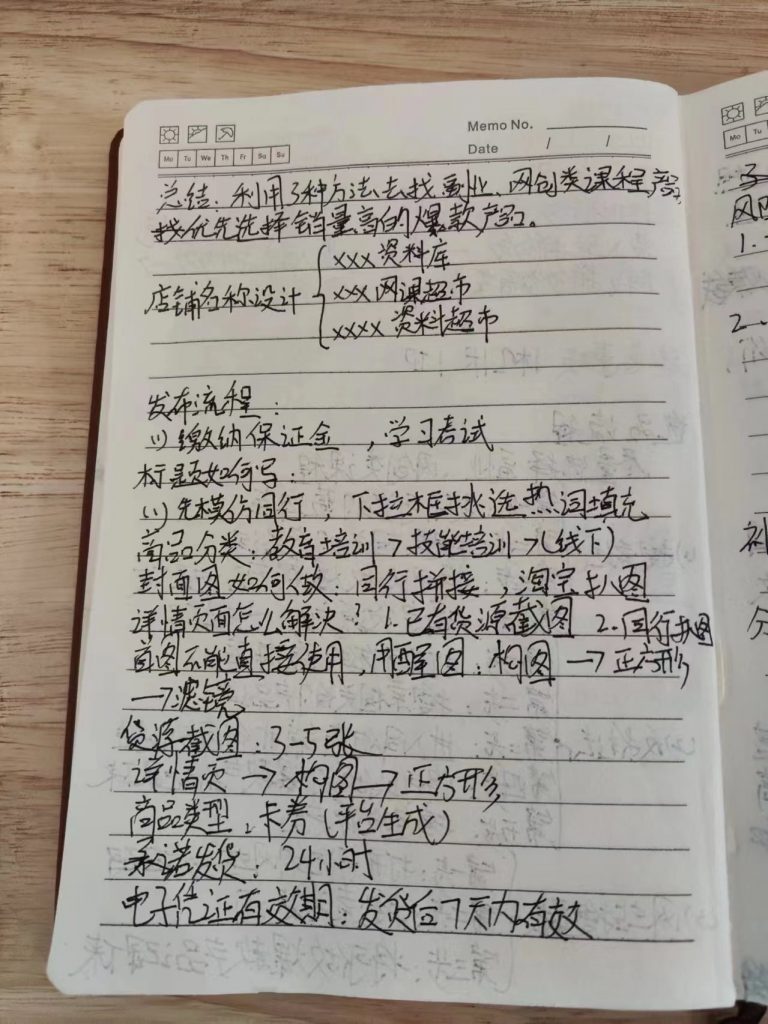 Memo No.
Date / /
Mo Tu We Th Fr Sa Su
总结：利用3种方法去找副业、网创类课程,产品
找优先选择销量高的爆款产品。
店铺名称设计
xxx 资料库
xxx 网课超市
xxxx 资料超市
发布流程：
(1) 缴纳保证金，学习考试
标题如何写：
(1) 先模仿同行，下拉框挑选热词填充
商品分类：教育培训>技能培训>(线下)
封面图如何做：同行拼接，淘宝扒图
详情页面怎么解决？1.已有货源截图 2.同行扒图
首图不能直接使用，用醒图：构图→正方形
→滤镜
货源截图：3-5张
详情页→构图→正方形
商品类型：卡券(平台生成)
承诺发货：24小时
电子凭证有效期：发货后7天内有效
Mo Tu
1.
2.